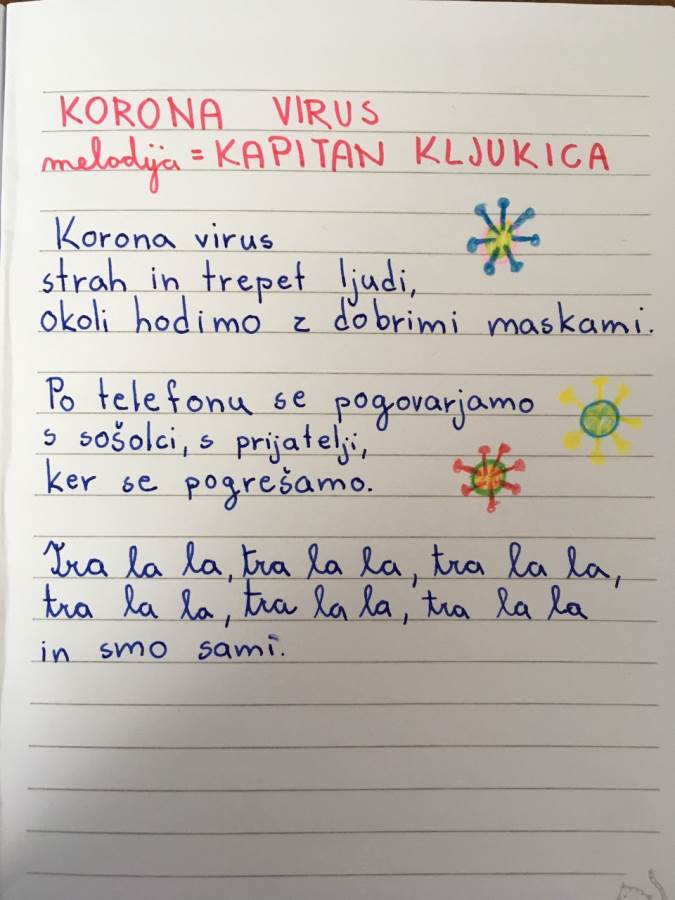 KORONA VIRUS
melodija = KAPITAN KLJUKICA
Korona virus
strah in trepet ljudi,
okoli hodimo z dobrimi maskami.
Po telefonu se pogovarjamo
s sošolci, s prijatelji,
ker se pogrešamo.
Tra la la, tra la la, tra la la,
tra la la, tra la la, tra la la
in smo sami.